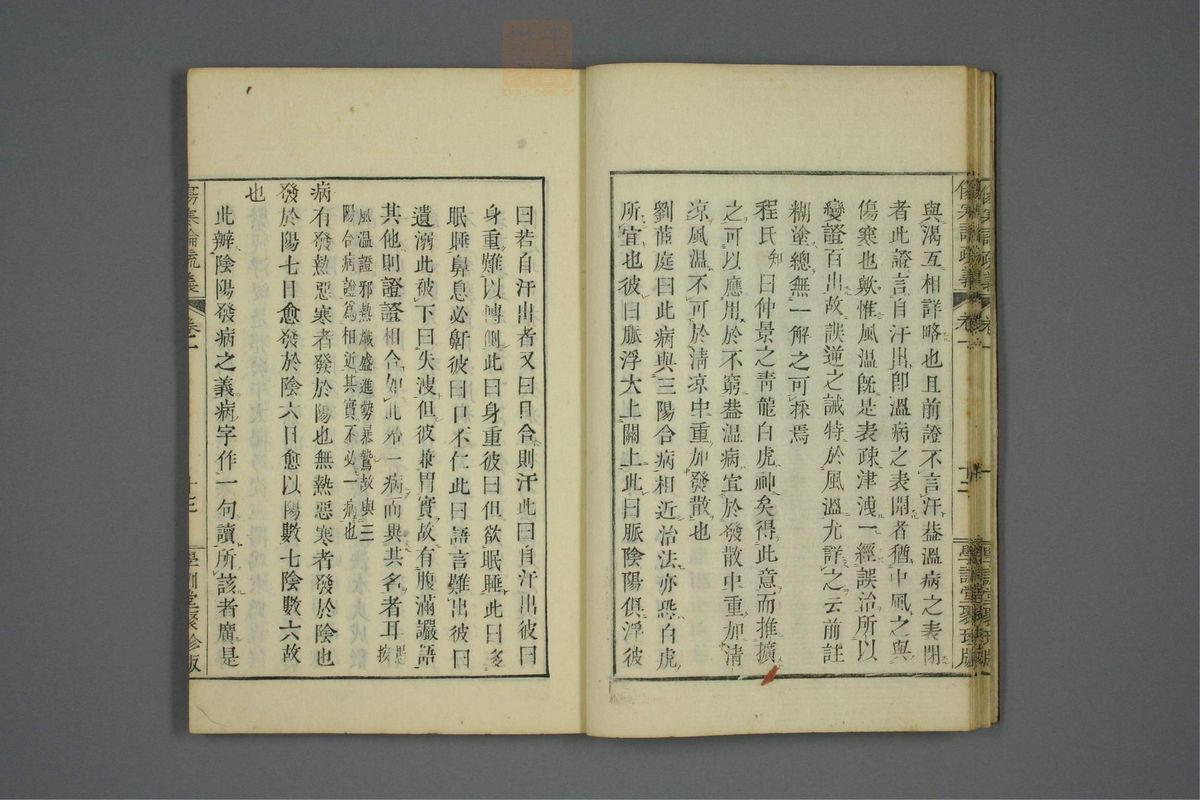 與渴互相詳略也且前證不言汗葢溫病之表閉
者此證言自汗出卽溫病之表開者猶中風之與
傷寒也歟惟風溫旣是表疎津洩一經誤治所以
變證百出故誤逆之誡特於風溫尤詳之云前註
糊塗總無一解之可採焉
程氏知曰仲景之靑龍白虎神矣得此意而推擴
之可以應用於不窮葢溫病宜於發散中重加淸
凉風溫不可於淸凉中重加發散也
劉茝庭曰此病與三陽合病相近治法亦恐白虎
所宜也彼曰脈浮大上關上此曰脈陰陽俱浮彼
曰若自汗出者又曰目合則汗此曰自汗出彼曰
身重難以轉側此曰身重彼曰但欲眠睡此曰多
眠睡鼻息必鼾彼曰口不仁此曰語言難出彼曰
遺溺此被下曰失溲但彼兼胃實故有腹滿讝語
其他則證證相合如此殆一病而異其名者耳愚按
風溫證邪熱熾盛進勢暴鷙故與三
陽合病證爲相近其實不必一病也
病有發熱惡寒者發於陽也無熱惡寒者發於陰也
發於陽七日愈發於陰六日愈以陽數七陰數六故
也
此辨陰陽發病之義病字作一句讀所該者廣是
傷寒論疏義
卷一
學訓堂聚珍版